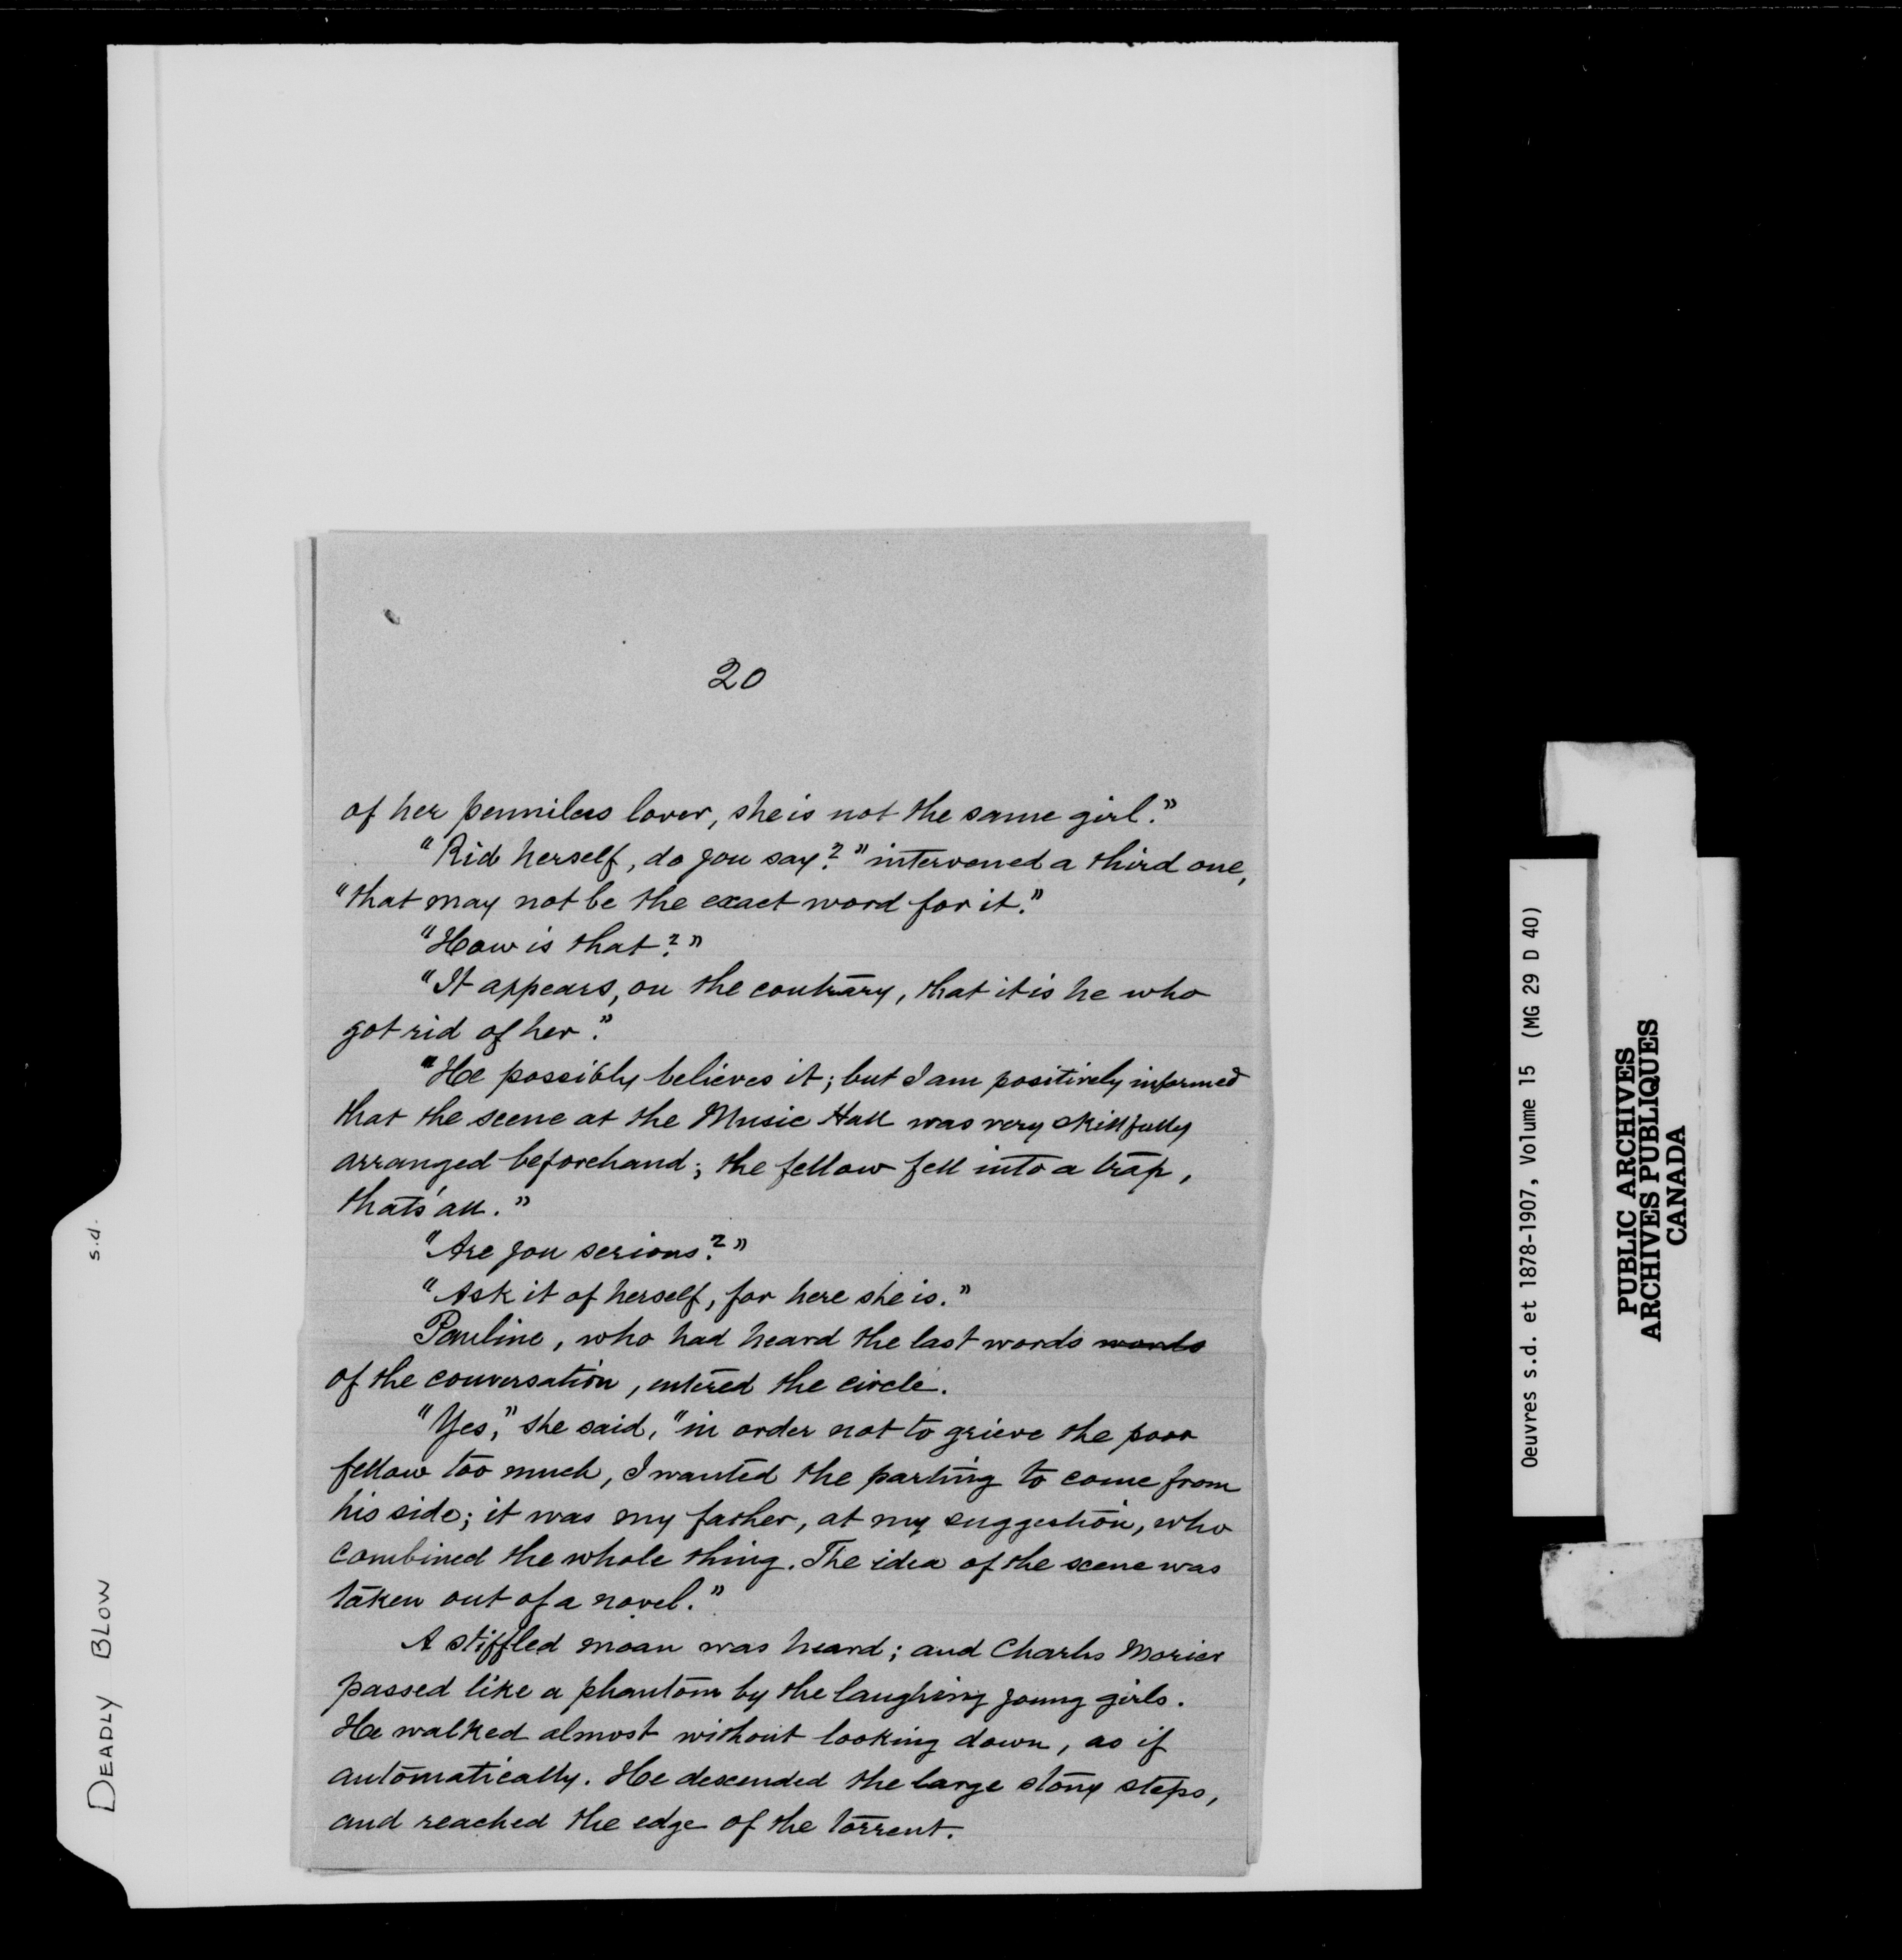 20
of her penniless lover, she is not the same girl."
"Rid herself, do you say?" intervened a third one,
"that may not be the exact word for it."
"How is that?"
"It appears, on the contrary, that it is he who
got rid of her."
"He possibly believes it; but I am positively informed
that the scene at the Music Hall was very skillfully
arranged beforehand; the fellow fell into a trap,
thats' all."
"Are you serious?"
"Ask it of herself, for here she is."
Pauline, who had heard the last words words
of the conversation, entered the circle.
"Yes," she said, "in order not to grieve the poor
fellow too much, I wanted the parting to come from
his side; it was my father, at my suggestion, who
combined the whole thing. The idea of the scene was
taken out of a novel."
A stiffled moan was heard; and Charles Morier
passed like a phantom by the laughing young girls.
He walked almost without looking down, as if
automatically. He descended the large stony steps,
and reached the edge of the torrent.
DEADLY BLOW
s.d.
Oeuvres s.d. et 1878-1907, Volume 15 (MG 29 D 40)
PUBLIC ARCHIVES
ARCHIVES PUBLIQUES
CANADA